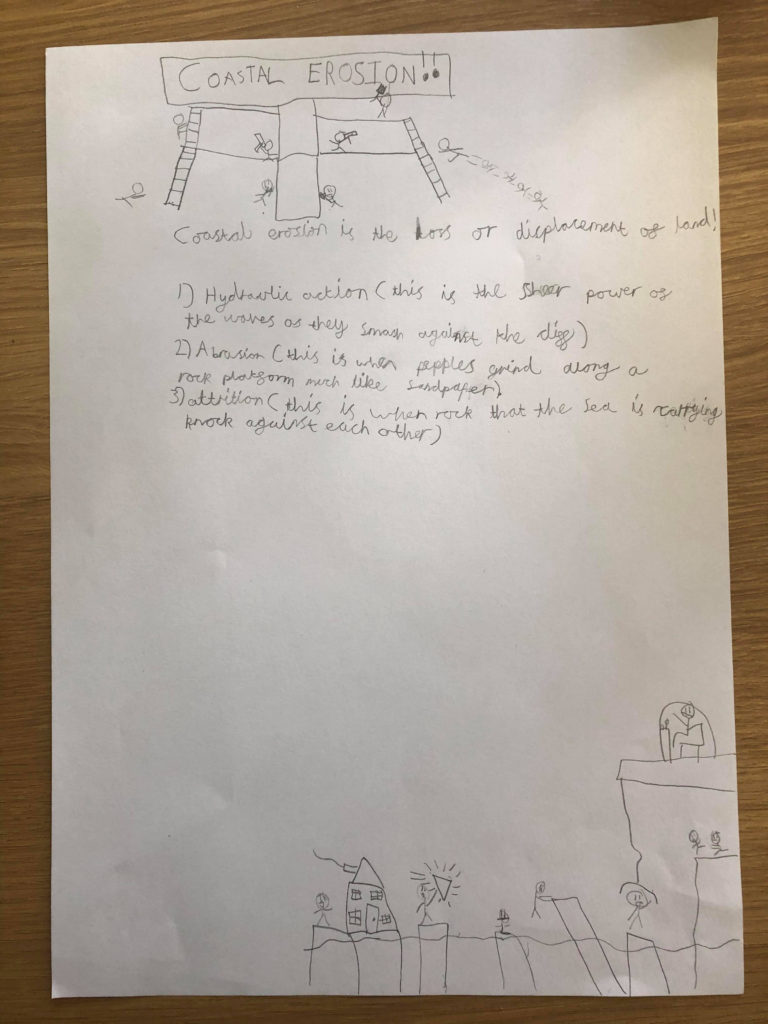 COASTAL EROSION!!
Coastal erosion is the loss or displacement of land!
1) Hydraulic action (this is the sheer power of
the waves as they smash against the cliff)
2) Abrasion (this is when pepples grind along a
rock platform much like sandpaper).
3) attrition (this is when rock that the sea is carrying
knock against each other)